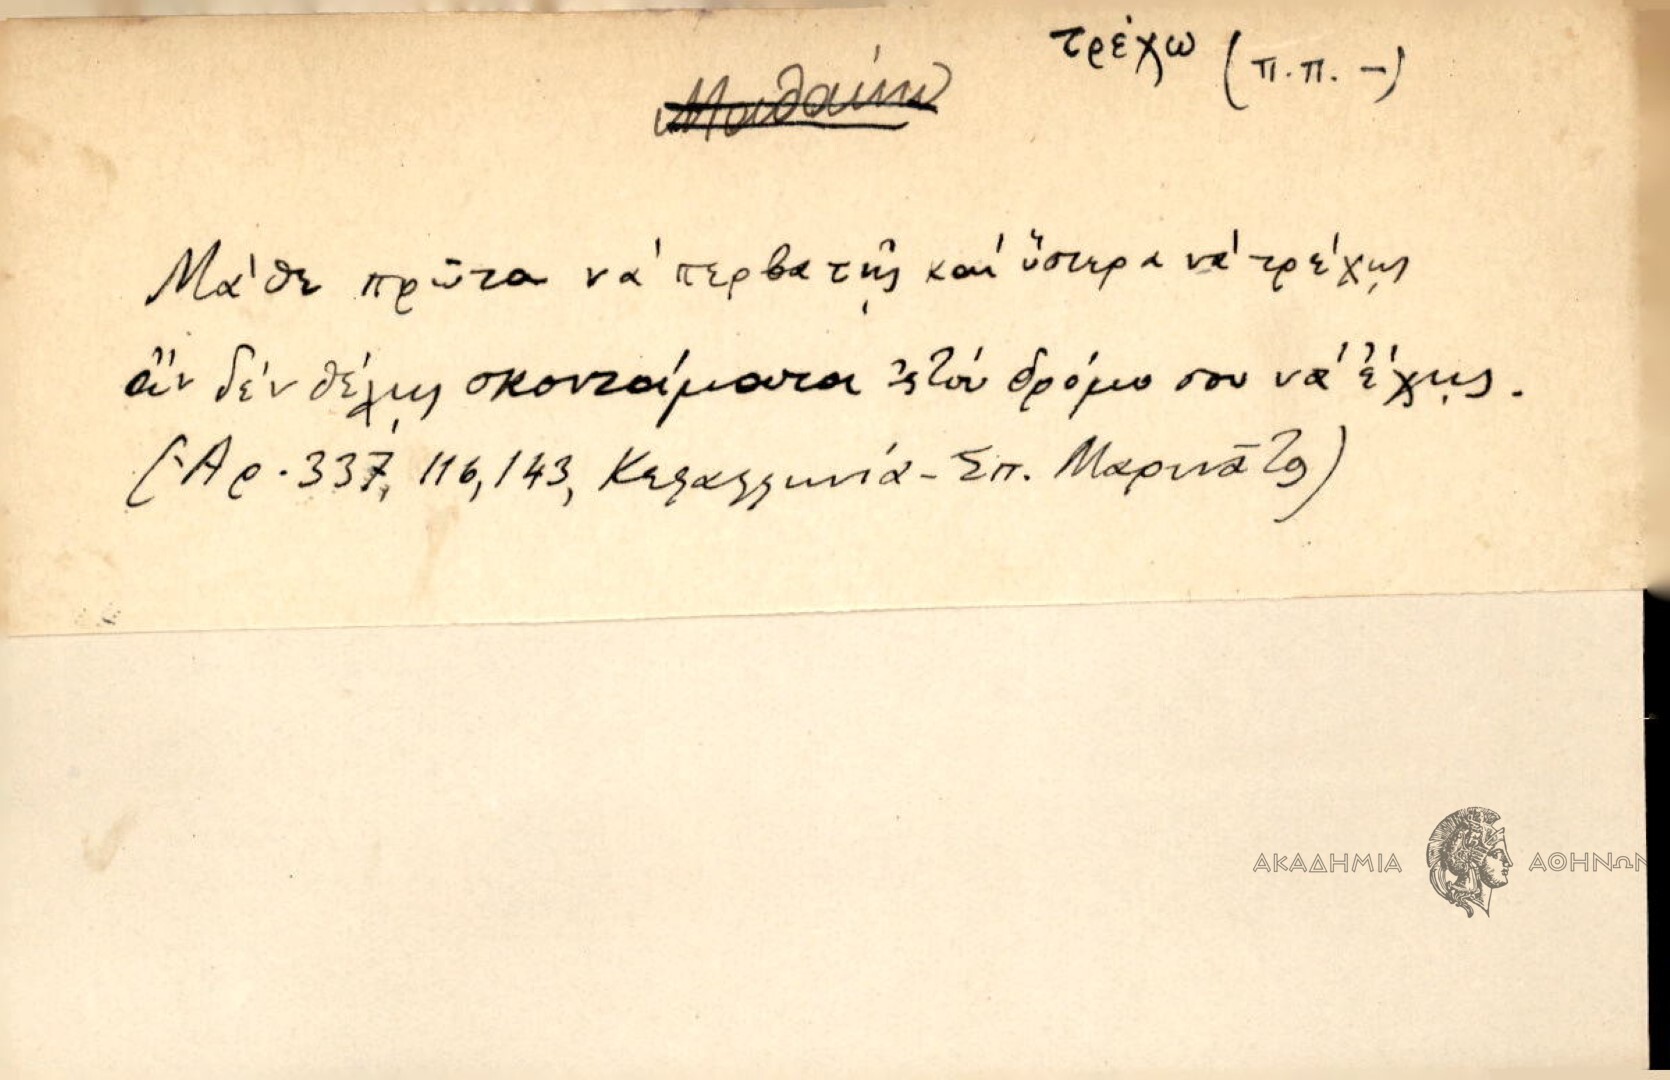 τρέχω (π.π. -)
Μαθαίνω
Μάθε πρῶτα νά περβατῇς καί ὕστερα νά τρέχῃς
ἄν δέν θέλῃς σκοντάματα 'ς τόν δρόμο σου νά ἔχῃς.
(Ἀρ. 337, 116, 143, Κεφαλληνία - Σπ. Μαρινᾶτος)
ΑΚΑΔΗΜΙΑ ΑΘΗΝΩΝ